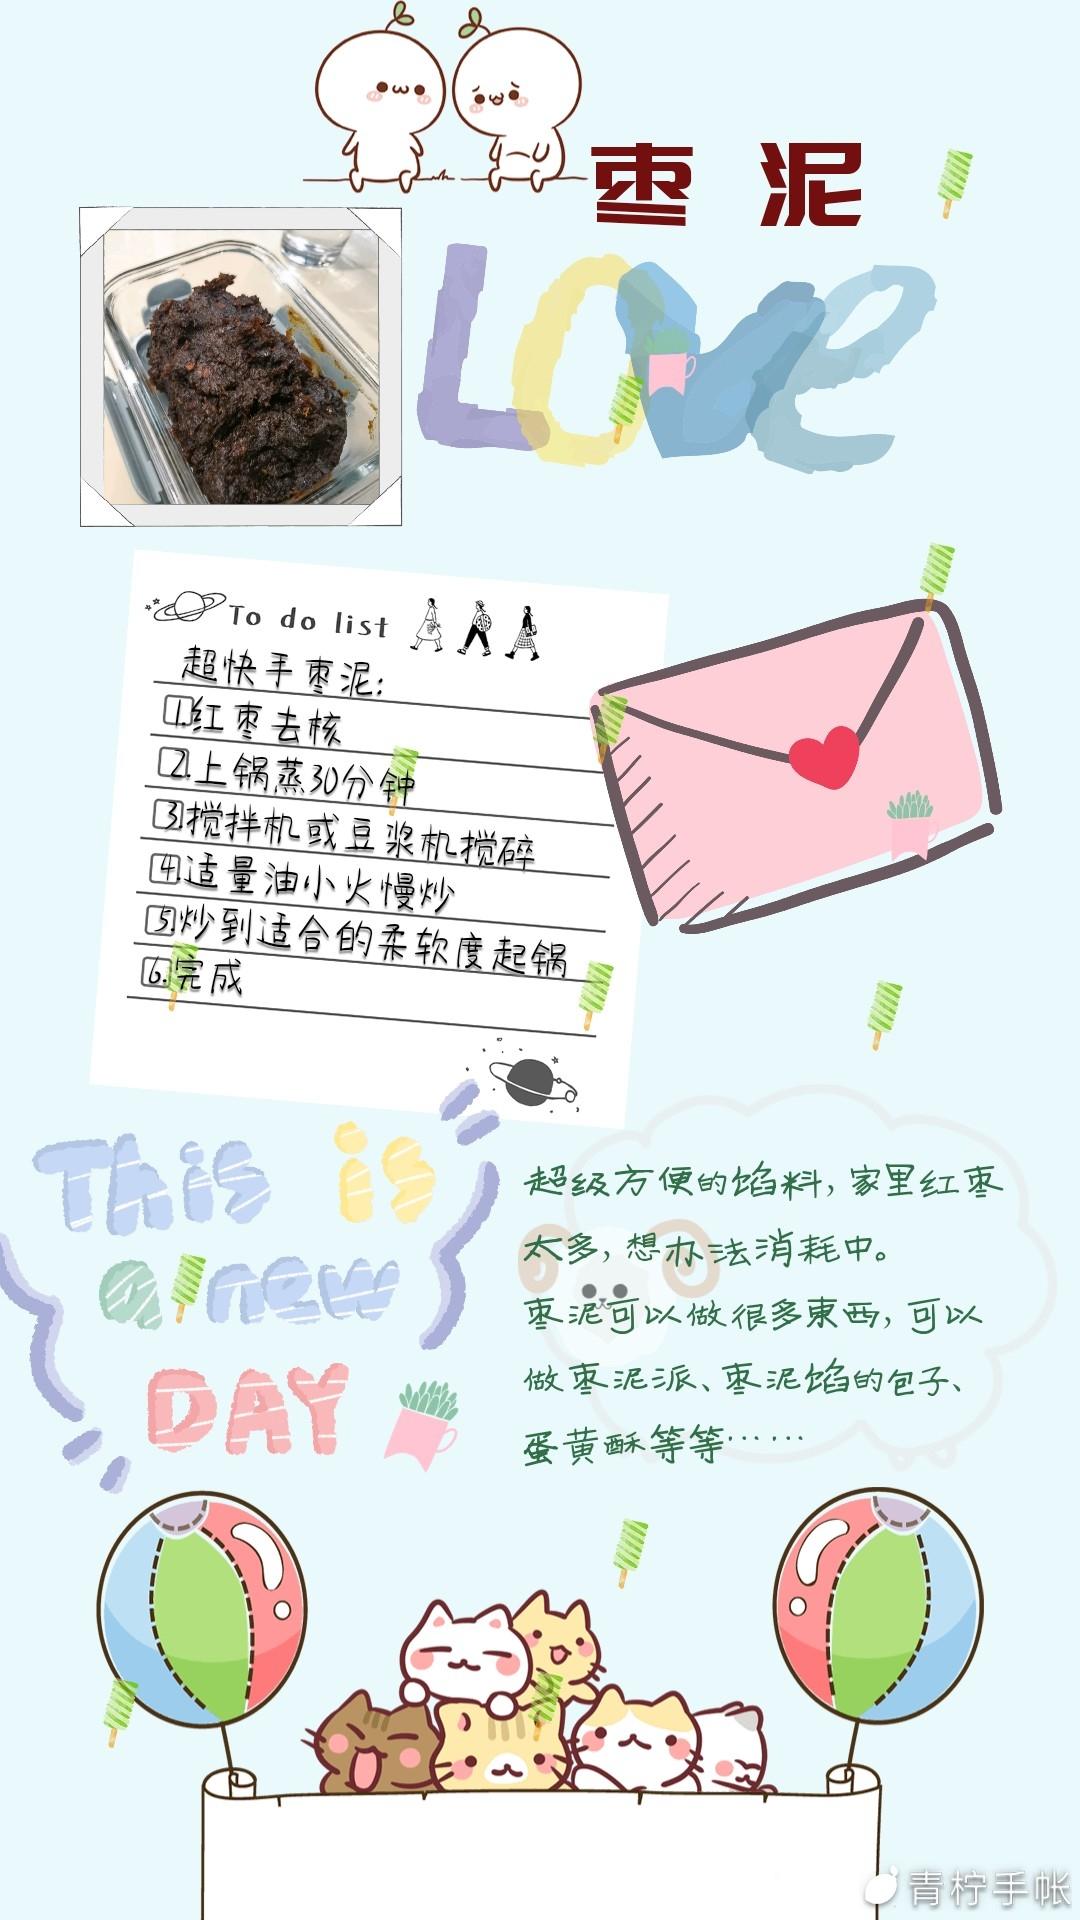 枣 泥
Love
To do list
超快手枣泥:
1.红枣去核
2.上锅蒸30分钟
3.搅拌机或豆浆机搅碎
4.适量油小火慢炒
5.炒到适合的柔软度起锅
6.完成
This is
a new
DAY
超级方便的馅料,家里红枣
太多,想办法消耗中。
枣泥可以做很多東西,可以
做枣泥派、枣泥馅的包子、
蛋黄酥等等……
青柠手帐